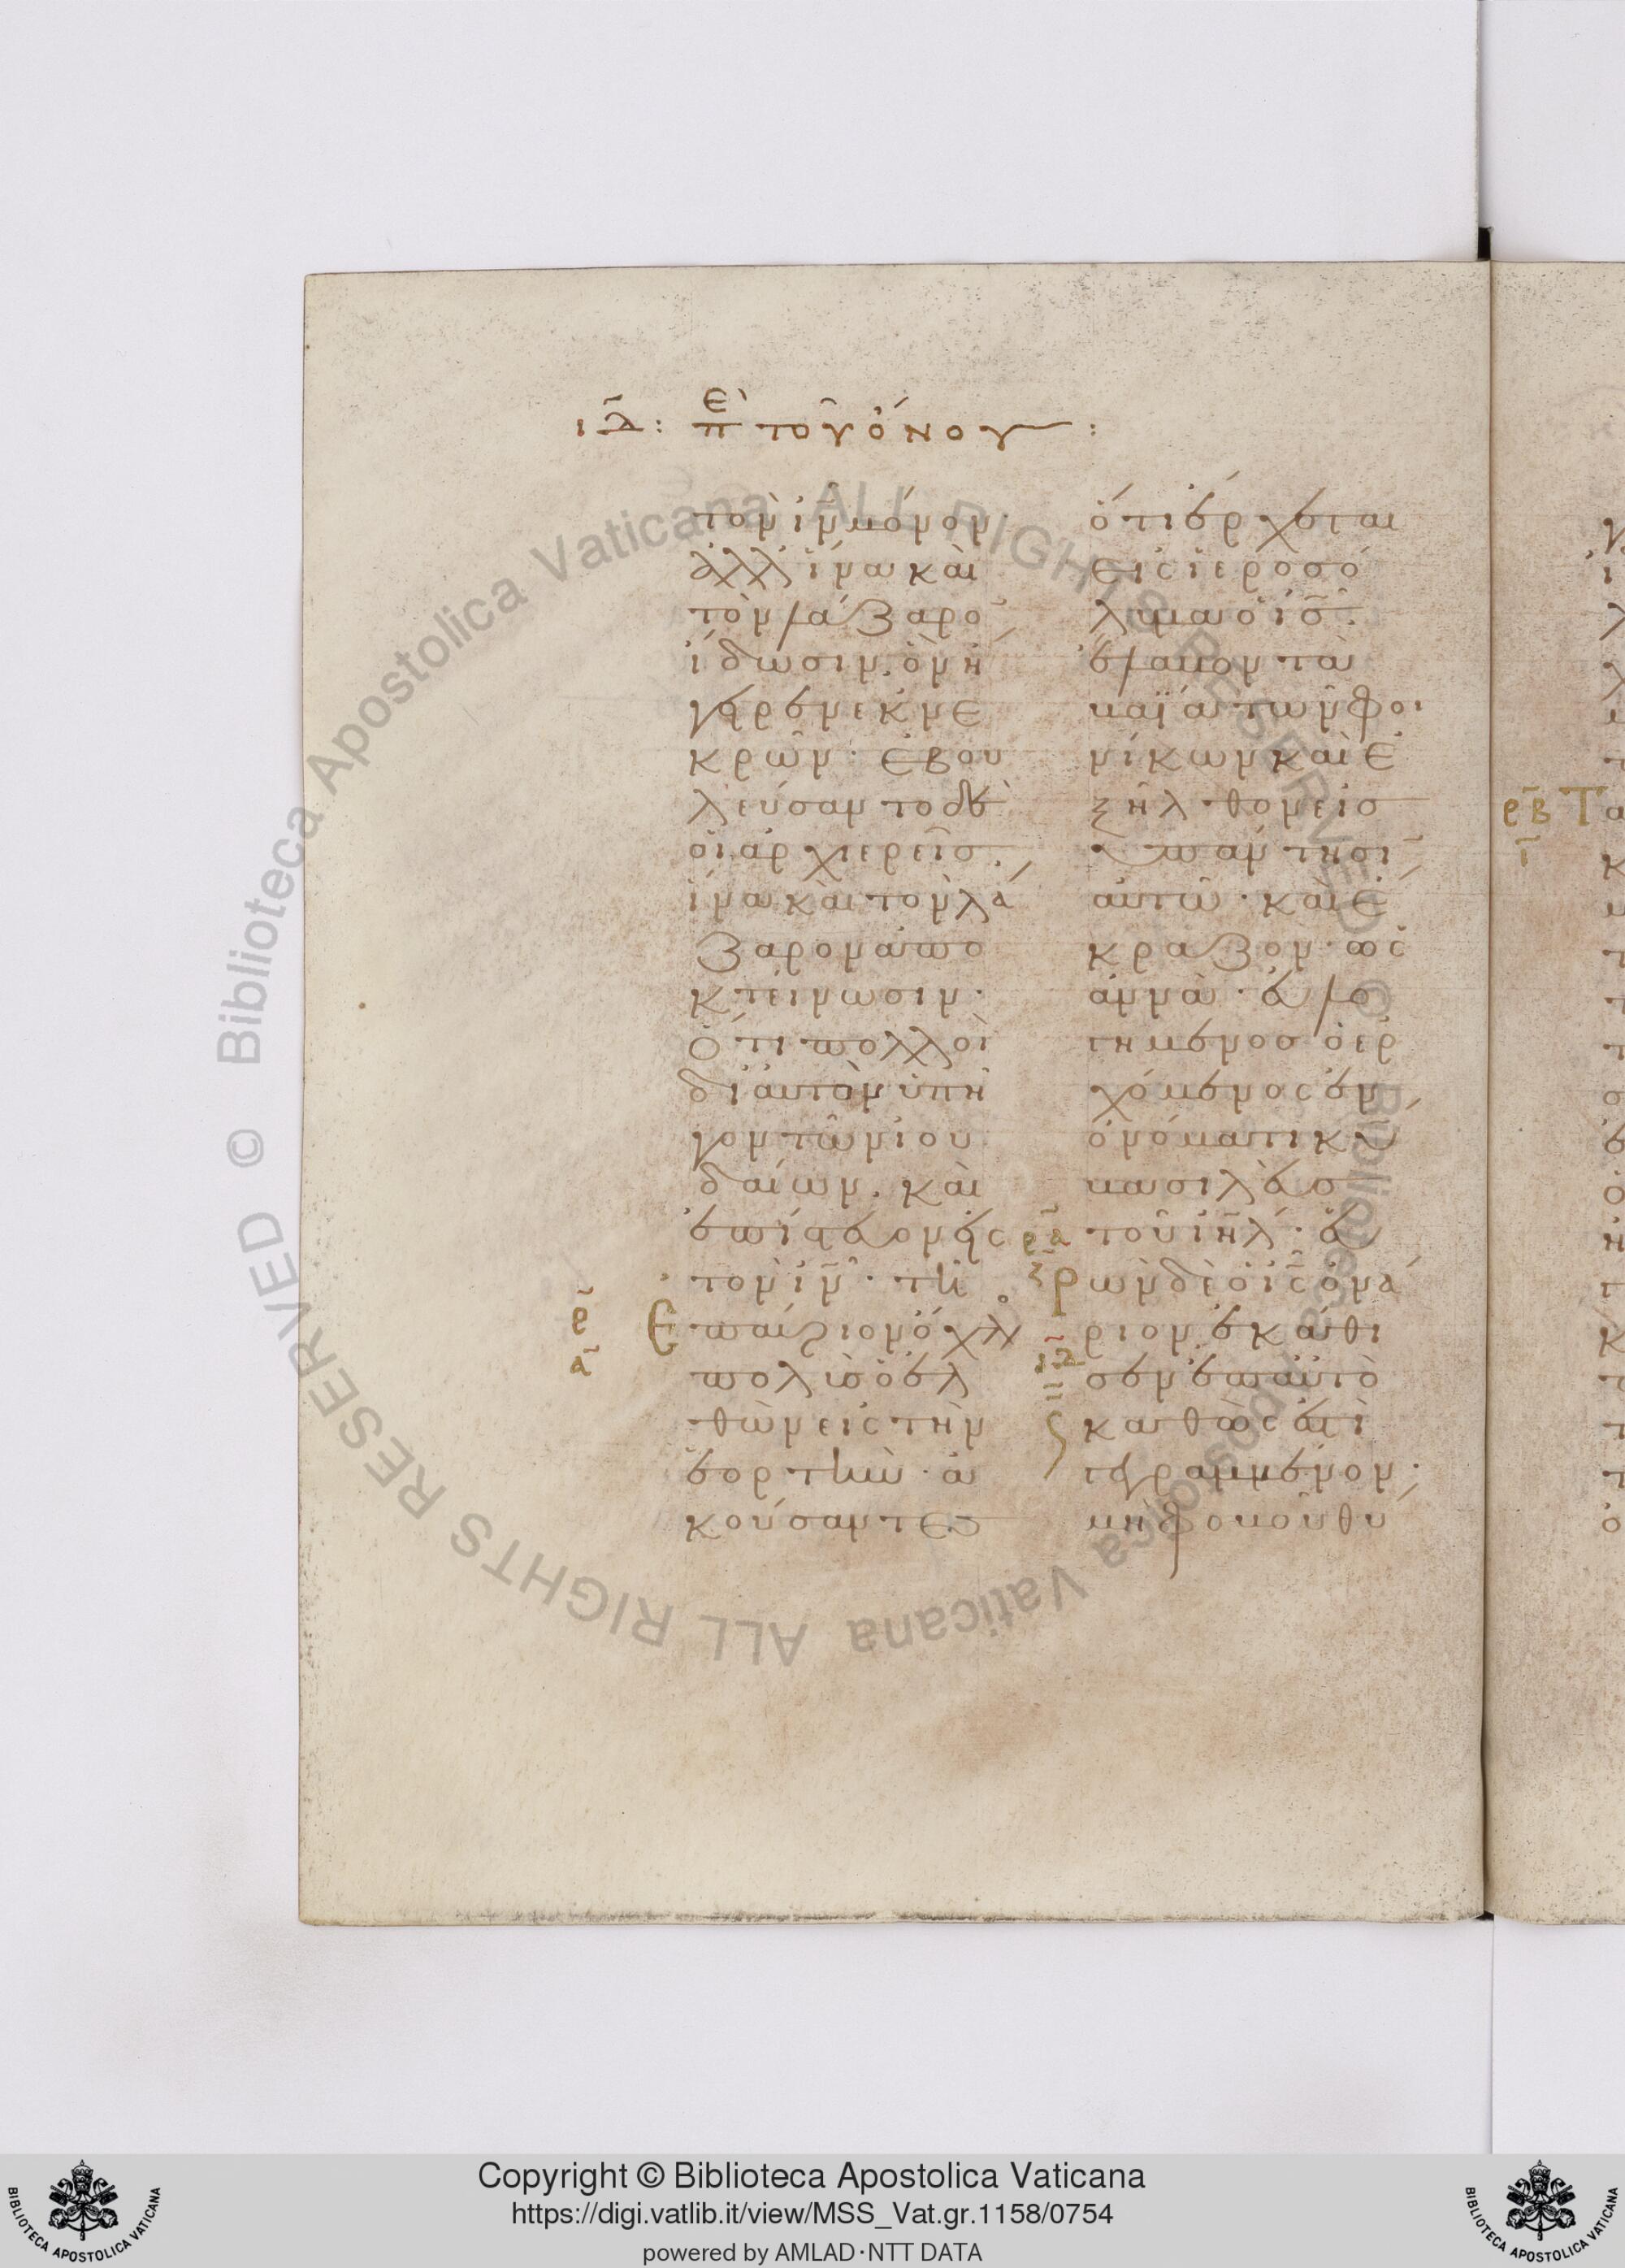 ιδ: επὶ τοῦ ὄνου:
τὸν ιν μόνον·
ἀλλ ἵνα καὶ
τὸν λάζαρον
ἴδωσιν. ὃν ἤ
γειρεν ἐκ νε
κρῶν· ἐβου
λεύσαντο δὲ
οἱ ἀρχιερεῖσ.
ἵνα καὶ τὸν λά
ζαρον ἀπο
κτείνωσιν·
Ὅτι πολλοὶ
δι αὐτὸν ὑπῆ
γον τῶν ἰου
δαίων. καὶ
ἐπίστευον εἰς
τὸν ιν· τῆ
ρ Ε παύριον ὄχλος
α πολὺς ὁ ἐλ
θὼν εἰς τὴν
ἑορτὴν· ἀ
κούσαντες
ὅτι ἔρχεται
εἰς ἱεροσό
λυμα ὁ ισ·
ἔλαβον τὰ
βαΐα τῶν φοι
νίκων καὶ ἐ
ξῆλθον εἰσ
ὑπάντησιν
αὐτῶ· καὶ ἔ
κραζον· ὡς
ἀννὰ· εὐλο
γημένοσ ὁ ἐρ
χόμενος ἐν
ὀνόματι κυ
βασιλεὺσ
ρα τοῦ ιηλ· εὑ
ζ ρὼν δὲ ὁ ις ὀνά
ριον ἐκάθι
ιδ σεν ἐπ αὐτὸ
καθὼς ἐστὶ
γεγραμμένον·
μὴ φοβοῦ θύ
ρβ Τ
ι
Copyright © Biblioteca Apostolica Vaticana
https://digi.vatlib.it/view/MSS_Vat.gr.1158/0754
powered by AMLAD·NTT DATA
BIBLIOTECA APOSTOLICA VATICANA
BIBLIOTECA APOSTOLICA VATICANA
© Biblioteca Apostolica Vaticana ALL RIGHTS RESERVED © Biblioteca Apostolica Vaticana ALL RIGHTS RESERVED